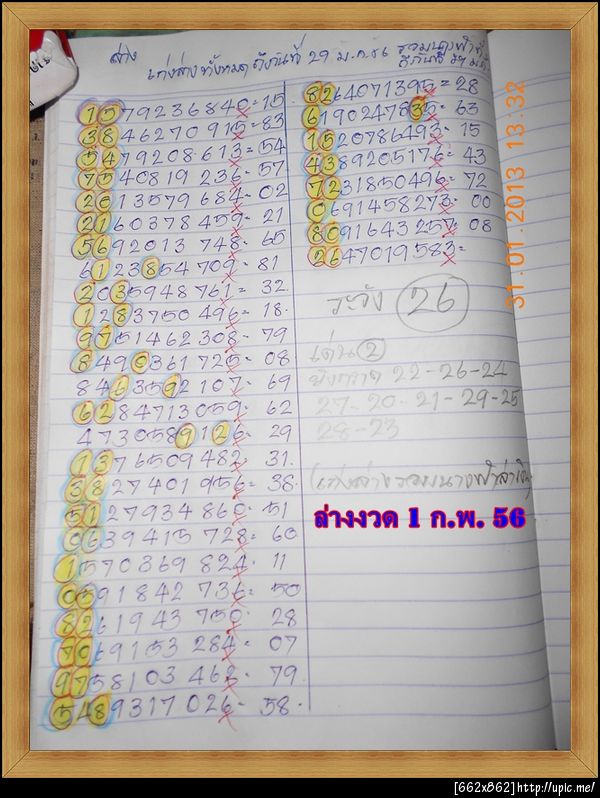 ล่าง
เก่งล่างทั้งหมด ถึงวันที่ 29 ม.ค. 56
1579236840 = 15
3846270915 = 83
5479208613 = 54
7540819236 = 57
2013579684 = 02
2160378459 = 21
5692013748 = 65
6123854709 = 81
2035948761 = 32
1283750496 = 18.
9751462308 = 79
8490361725 = 08
8463592107 = 69
6284713059 = 62
4730589126 = 29
1376509482 = 31.
3827401956 = 38.
5127934860 = 51
0639415728 = 60
1570369824 = 11
0591842736 = 50
8261943750 = 28
7069153284 = 07
9758103462 = 79
5489317026 = 58.
8264071395 = 28
6190247835 = 63
1520786493 = 15
4389205176 = 43
7231850496 = 72
0691458273 = 00
8091643257 = 08
2647019583 =
ระวัง 26
เด่น 2
22-26-24
27-20-21-29-25
28-23
(เก่งล่างรวมนางฟ้า
ล่างงวด 1 ก.พ. 56
31.01.2013 13:32
[662x862]http://upic.me/